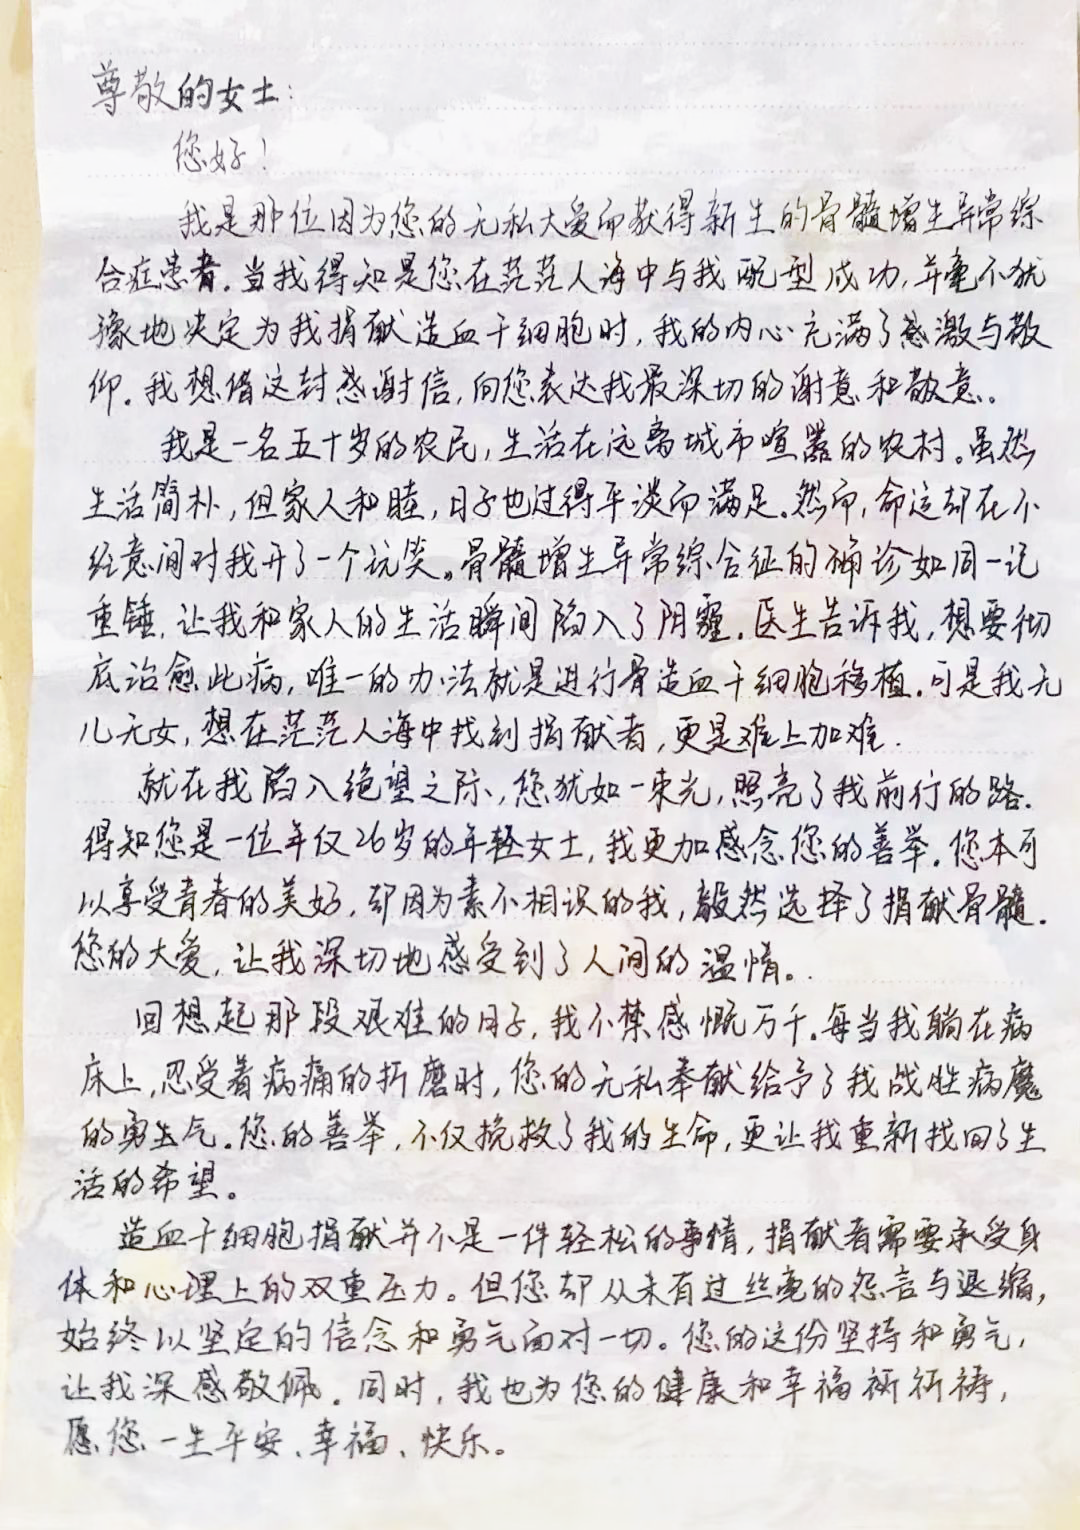 尊敬的女士：
您好！
我是那位因为您的无私大爱而获得新生的骨髓增生异常综
合症患者。当我得知是您在茫茫人海中与我配型成功，并毫不犹
豫地决定为我捐献造血干细胞时，我的内心充满了感激与敬
仰。我想借这封感谢信，向您表达我最深切的谢意和敬意。
我是一名五十岁的农民，生活在远离城市喧嚣的农村。虽然
生活简朴，但家人和睦，日子也过得平淡而满足。然而，命运却在不
经意间对我开了一个玩笑。骨髓增生异常综合征的确诊如同一记
重锤，让我和家人的生活瞬间陷入了阴霾。医生告诉我，想要彻
底治愈此病，唯一的办法就是进行骨造血干细胞移植。可是我无
儿无女，想在茫茫人海中找到捐献者，更是难上加难．
就在我陷入绝望之际，您犹如一束光，照亮了我前行的路．
得知您是一位年仅26岁的年轻女士，我更加感念您的善举。您本可
以享受青春的美好，却因为素不相识的我，毅然选择了捐献骨髓．
您的大爱，让我深切地感受到了人间的温情。
回想起那段艰难的日子，我不禁感慨万千。每当我躺在病
床上，忍受着病痛的折磨时，您的无私奉献给予了我战胜病魔
的勇气。您的善举，不仅挽救了我的生命，更让我重新找回了生
活的希望。
造血干细胞捐献并不是一件轻松的事情，捐献者需要承受身
体和心理上的双重压力。但您却从未有过丝毫的怨言与退缩，
始终以坚定的信念和勇气面对一切。您的这份坚持和勇气，
让我深感敬佩。同时，我也为您的健康和幸福祈祈祷，
愿您一生平安、幸福、快乐。